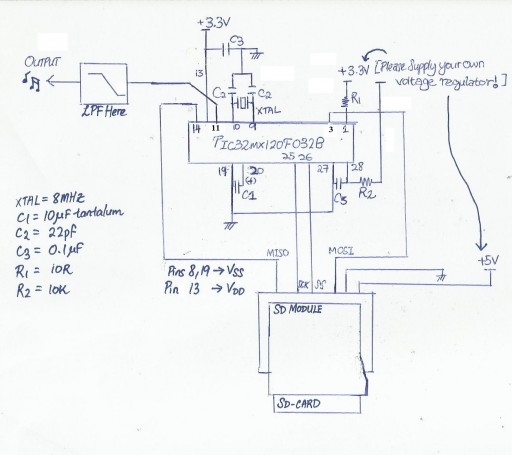 +3.3V
C3
OUTPUT
+3.3V [Please Supply your own
voltage regulator!]
13
C2
C2
XTAL
R1
LPF Here
14 11 10 9 3 1
PIC32MX120F032B
25 26
19 20 27 28
(+)
C1
C3
R2
XTAL = 8MHz
C1 = 10µF tantalum
C2 = 22pf
C3 = 0.1µF
R1 = 10R
R2 = 10K
MISO
MOSI
+5V
Pins 8,19 → VSS
Pin 13 → VDD
SCK
SS
SD MODULE
SD-CARD